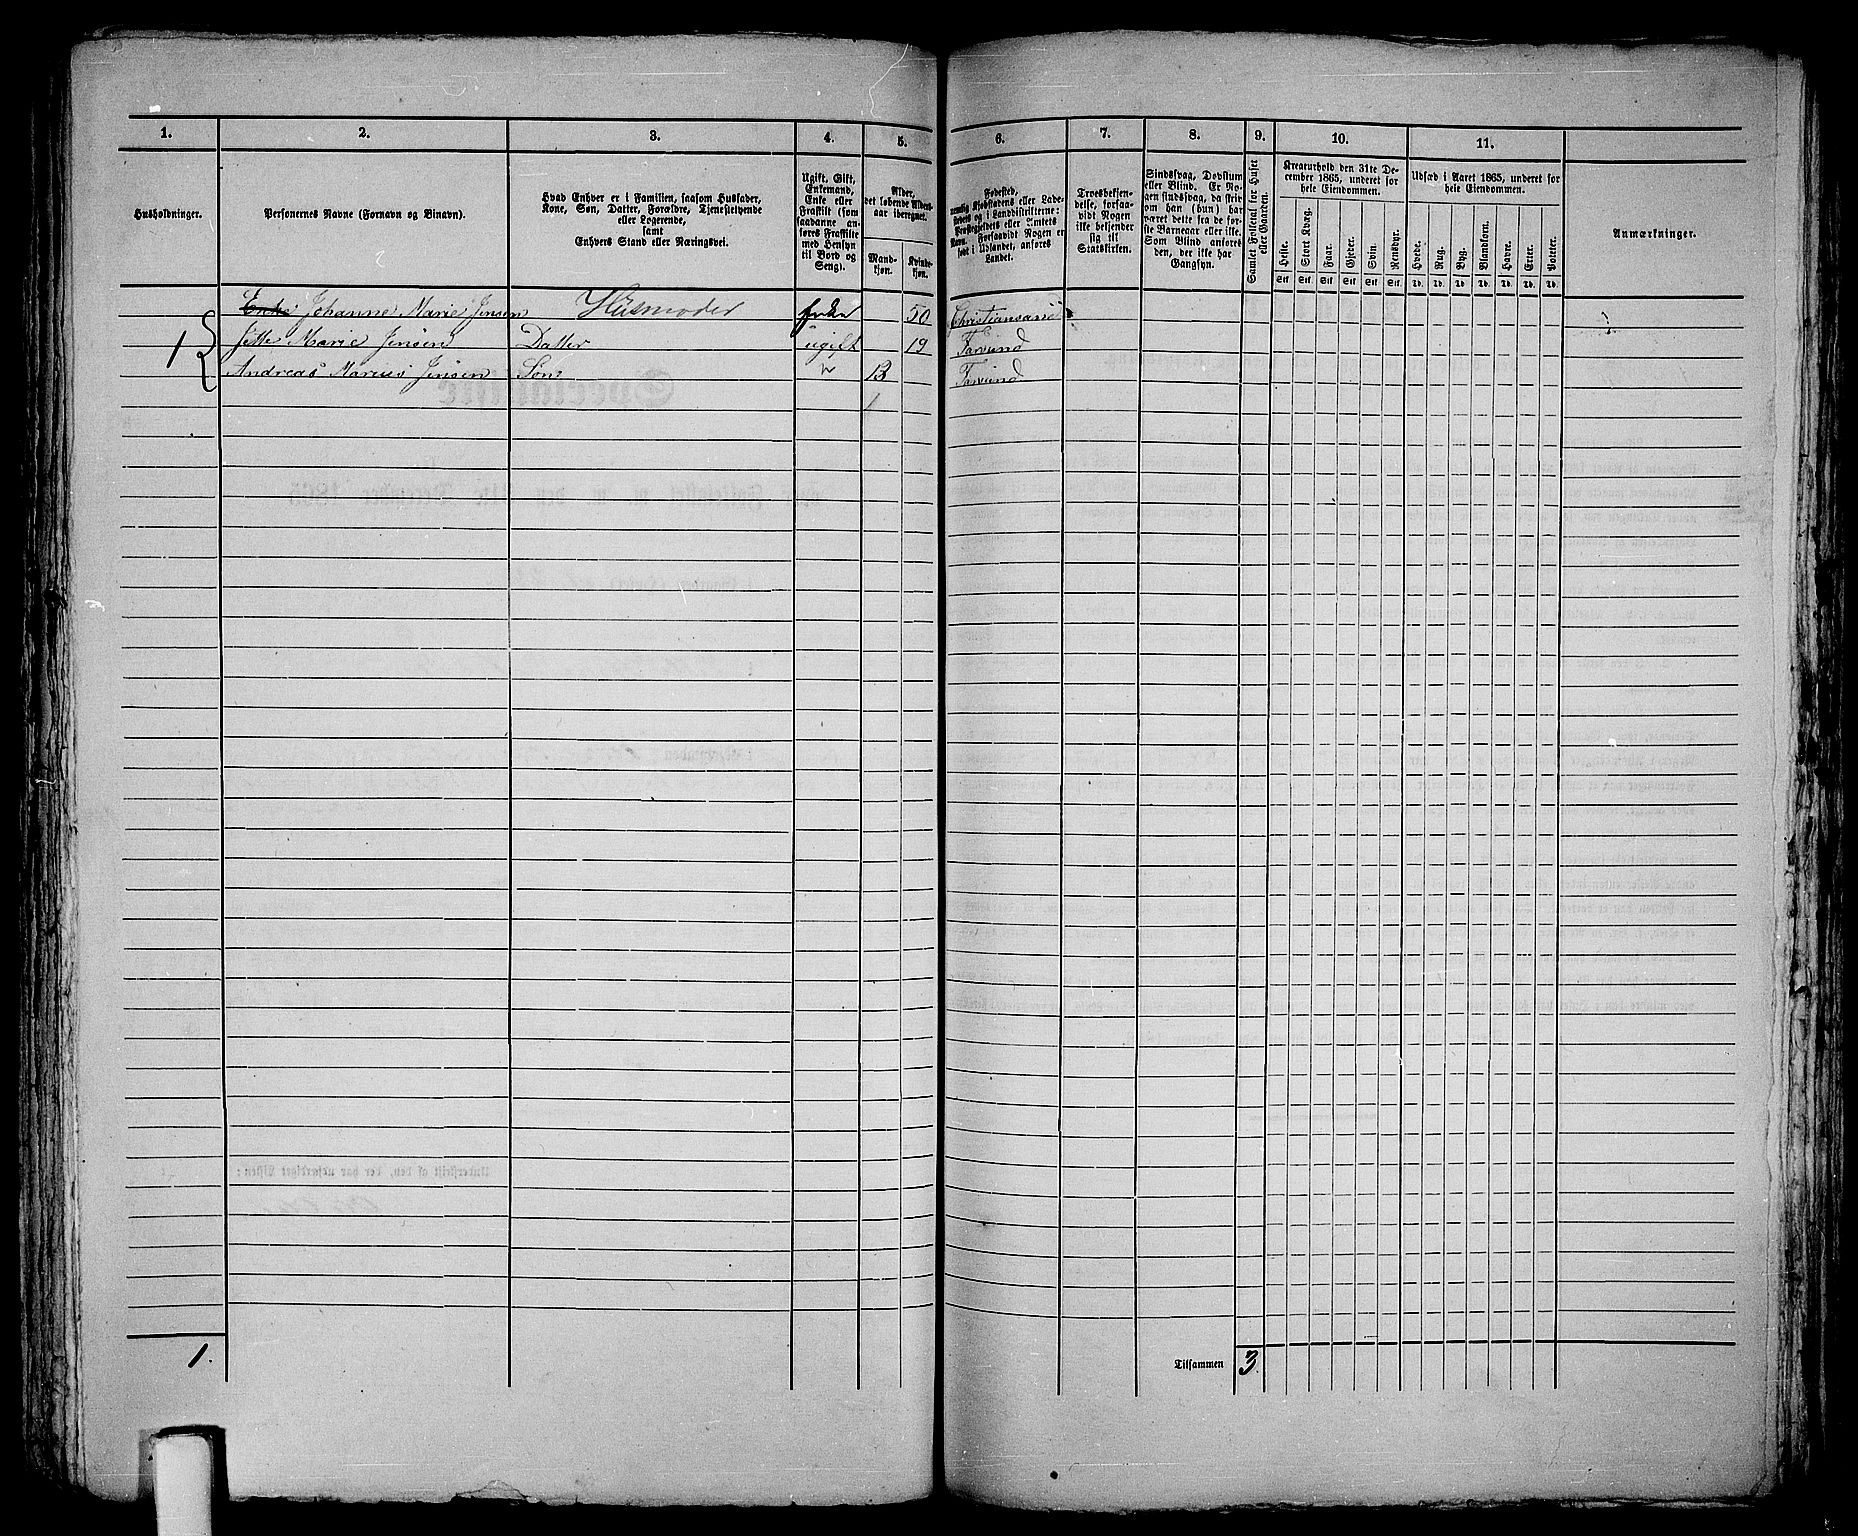 1. 2. 3. 4. 5. 6. 7. 8. 9. 10. 11.
Husholdninger.
Personernes Navne (Fornavn og Binavn).
Hvad Enhver er i Familien, saasom Husfader,
Kone, Søn, Datter, Forældre, Tjenestetyende
eller Logerende,
samt
Enhvers Stand eller Næringsvei.
Ugift, Gift,
Enkemand,
Enke eller
Fraskilt (som
saadanne an-
føres Fraskilte
med Hensyn
til Bord og
Seng).
Alder,
det løbende Alders-
aar iberegnet.
Mand-
kjøn.
Kvinde-
kjøn.
Fødested,
nemlig Kjøbstadens eller Lade-
stedets og i Landdistrikterne:
Præstegjeldets eller Amtets
Navn. Forsaavidt Nogen er
født i Udlandet, anføres
Landet.
Troesbekjen-
delse, forsaa-
vidt Nogen
ikke bekjender
sig til
Statskirken.
Sindssvag, Døvstum
eller Blind. Er No-
gen sindssvag, da skriv
om han (hun) har
været dette fra de før-
ste Barneaar eller ikke.
Som Blind anføres
den, der ikke har
Gangsyn.
Samlet Folketal for Huset
eller Gaarden.
Kreaturhold den 31te De-
cember 1865, underet for
hele Eiendommen.
Heste. Stort Kvæg. Faar. Gjeder. Svin. Rensdyr.
Stk. Stk. Stk. Stk. Stk. Stk.
Udsæd i Aaret 1865, underet for
hele Eiendommen.
Hvede. Rug. Byg. Blandkorn. Havre. Erter. Poteter.
Td. Td. Td. Td. Td. Td. Td.
Anmærkninger.
Enke Johanne Marie Jensen Husmoder Enke 50 Christiansand
1 Jette Marie Jensen Datter ugift 19 Farsund
Andreas Marius Jensen Søn " 13 Farsund
1.
Tilsammen 3